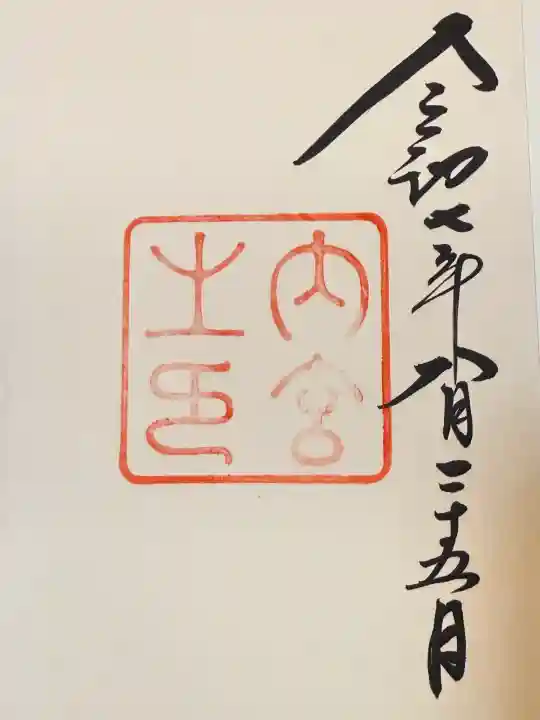 令和七年八月二十五日
内宮
之印